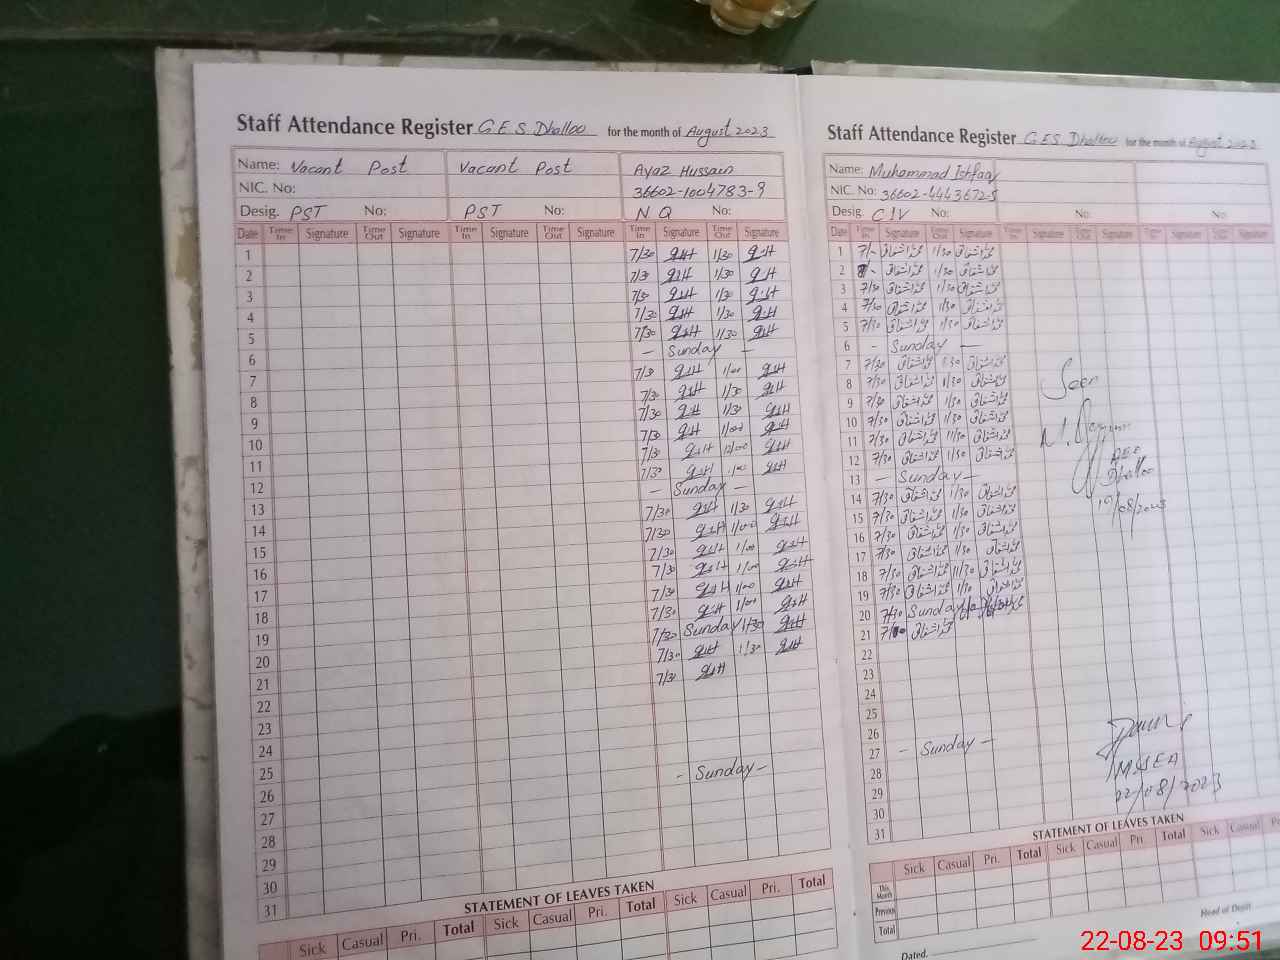 Staff Attendance Register G.E.S Dhalloo for the month of August 2023
Name: Vacant Post Vacant Post Ayaz Hussain
NIC. No: 36602-1004783-9
Desig. PST No: PST No: N Q No:
Date Time In Signature Time Out Signature Time In Signature Time Out Signature Time In Signature Time Out Signature
1 7/30 1/30
2 7/30 1/30
3 7/30 1/30
4 7/30 1/30
5 7/30 1/30
6 - Sunday -
7 7/30 1/00
8 7/30 1/30
9 7/30 1/30
10 7/30
11 7/30
12 7/30
13 - Sunday -
14 7/30 1/30
15 7/30
16 7/30 1/00
17 7/30 1/00
18 7/30 1/00
19 7/30 1/00
20 7/30 Sunday 1/30
21 7/30 1/30
22 7/30
23
24
25
26
27 - Sunday -
28
29
30
31
STATEMENT OF LEAVES TAKEN
Sick Casual Pri. Total Sick Casual Pri. Total Sick Casual Pri. Total
Staff Attendance Register G.E.S Dhalloo for the month of August 2023
Name: Muhammad Ishfaq
NIC. No: 36602-4443672-5
Desig. CIV No: No: No:
Date Time In Signature Time Out Signature Time In Signature Time Out Signature Time In Signature Time Out Signature
1 7/- محمد اشفاق 1/30 محمد اشفاق
2 8/- محمد اشفاق 1/30 محمد اشفاق
3 7/30 محمد اشفاق 1/30 محمد اشفاق
4 7/30 محمد اشفاق 1/30 محمد اشفاق
5 7/30 محمد اشفاق 1/30 محمد اشفاق
6 - Sunday -
7 7/30 محمد اشفاق 1/30 محمد اشفاق
8 7/30 محمد اشفاق 1/30 محمد اشفاق
9 7/30 محمد اشفاق 1/30 محمد اشفاق
10 7/30 محمد اشفاق 1/30 محمد اشفاق
11 7/30 محمد اشفاق 11/30 محمد اشفاق
12 7/30 محمد اشفاق 1/30 محمد اشفاق
13 - Sunday -
14 7/30 محمد اشفاق 1/30 محمد اشفاق
15 7/30 محمد اشفاق 1/30 محمد اشفاق
16 7/30 محمد اشفاق 1/30 محمد اشفاق
17 7/30 محمد اشفاق 1/30 محمد اشفاق
18 7/30 محمد اشفاق 11/30 محمد اشفاق
19 7/30 محمد اشفاق 1/30 محمد اشفاق
20 7/30 Sunday
21 محمد اشفاق
22
23
24
25
26
27 - Sunday -
28
29
30
31
Seen
AEO
Dhalloo
19/08/2023
MSSEA
22/08/2023
STATEMENT OF LEAVES TAKEN
Sick Casual Pri. Total Sick Casual Pri Total Sick Casual Pri.
This Month
Previous
Total
Dated.
Head of Deptt
22-08-23 09:51